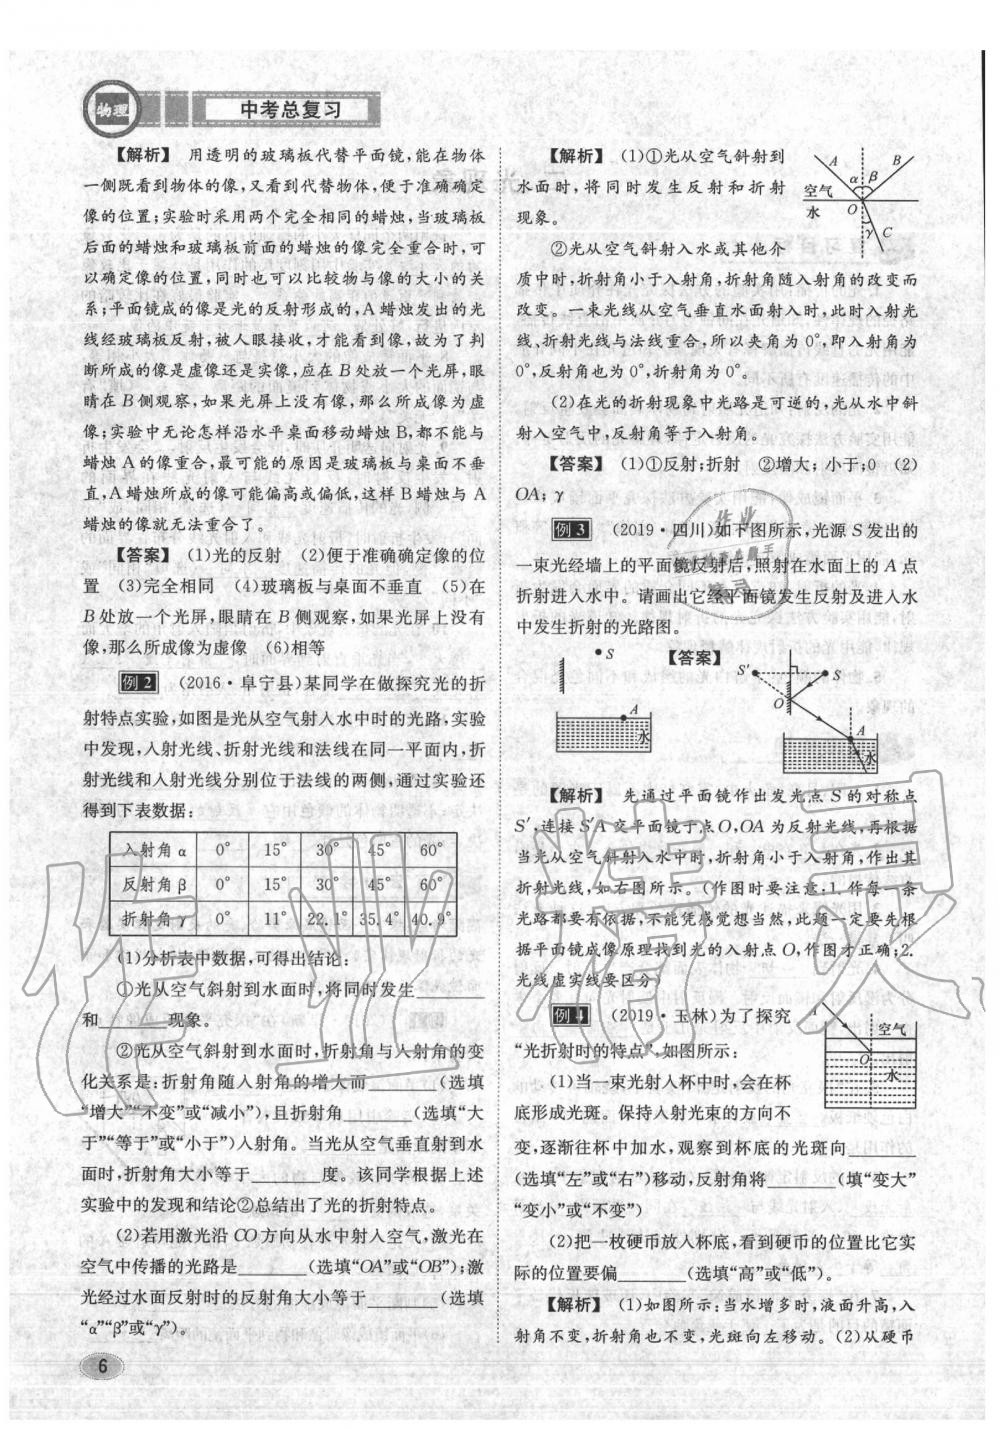 物理
中考总复习
【解析】 用透明的玻璃板代替平面镜,能在物体
一侧既看到物体的像,又看到代替物体,便于准确确定
像的位置;实验时采用两个完全相同的蜡烛,当玻璃板
后面的蜡烛和玻璃板前面的蜡烛的像完全重合时,可
以确定像的位置,同时也可以比较物与像的大小的关
系;平面镜成的像是光的反射形成的,A蜡烛发出的光
线经玻璃板反射,被人眼接收,才能看到像,故为了判
断所成的像是虚像还是实像,应在B处放一个光屏,眼
睛在B侧观察,如果光屏上没有像,那么所成像为虚
像;实验中无论怎样沿水平桌面移动蜡烛B,都不能与
蜡烛A的像重合,最可能的原因是玻璃板与桌面不垂
直,A蜡烛所成的像可能偏高或偏低,这样B蜡烛与A
蜡烛的像就无法重合了。
【答案】 (1)光的反射 (2)便于准确确定像的位
置 (3)完全相同 (4)玻璃板与桌面不垂直 (5)在
B处放一个光屏,眼睛在B侧观察,如果光屏上没有
像,那么所成像为虚像 (6)相等
例2 (2016·阜宁县)某同学在做探究光的折
射特点实验,如图是光从空气射入水中时的光路,实验
中发现,入射光线、折射光线和法线在同一平面内,折
射光线和入射光线分别位于法线的两侧,通过实验还
得到下表数据:
入射角α 0° 15° 30° 45° 60°
反射角β 0° 15° 30° 45° 60°
折射角γ 0° 11° 22.1° 35.4° 40.9°
(1)分析表中数据,可得出结论:
①光从空气斜射到水面时,将同时发生______
和______现象。
②光从空气斜射到水面时,折射角与入射角的变
化关系是:折射角随入射角的增大而______(选填
“增大”“不变”或“减小”),且折射角______(选填“大
于”“等于”或“小于”)入射角。当光从空气垂直射到水
面时,折射角大小等于______度。该同学根据上述
实验中的发现和结论②总结出了光的折射特点。
(2)若用激光沿CO方向从水中射入空气,激光在
空气中传播的光路是______(选填“OA”或“OB”);激
光经过水面反射时的反射角大小等于______(选填
“α”“β”或“γ”)。
6
【解析】 (1)①光从空气斜射到
水面时,将同时发生反射和折射
现象。
A B α β 空气 水 O γ C
②光从空气斜射入水或其他介
质中时,折射角小于入射角,折射角随入射角的改变而
改变。一束光线从空气垂直水面射入时,此时入射光
线、折射光线与法线重合,所以夹角为0°,即入射角为
0°,反射角也为0°,折射角为0°。
(2)在光的折射现象中光路是可逆的,光从水中斜
射入空气中,反射角等于入射角。
【答案】 (1)①反射;折射 ②增大;小于;0 (2)
OA;γ
例3 (2019·四川)如下图所示,光源S发出的
一束光经墙上的平面镜反射后,照射在水面上的A点
折射进入水中。请画出它经平面镜发生反射及进入水
中发生折射的光路图。
S 【答案】 S′ S
O
A A
水 水
【解析】 先通过平面镜作出发光点S的对称点
S′,连接S′A交平面镜于点O,OA为反射光线,再根据
当光从空气斜射入水中时,折射角小于入射角,作出其
折射光线,如右图所示。(作图时要注意:1.作每一条
光路都要有依据,不能凭感觉想当然,此题一定要先根
据平面镜成像原理找到光的入射点O,作图才正确;2.
光线虚实线要区分)
例4 (2019·玉林)为了探究
“光折射时的特点”,如图所示:
A 空气 O 水
(1)当一束光射入杯中时,会在杯
底形成光斑。保持入射光束的方向不
变,逐渐往杯中加水,观察到杯底的光斑向______
(选填“左”或“右”)移动,反射角将______(填“变大”
“变小”或“不变”)
(2)把一枚硬币放入杯底,看到硬币的位置比它实
际的位置要偏______(选填“高”或“低”)。
【解析】 (1)如图所示:当水增多时,液面升高,入
射角不变,折射角也不变,光斑向左移动。(2)从硬币